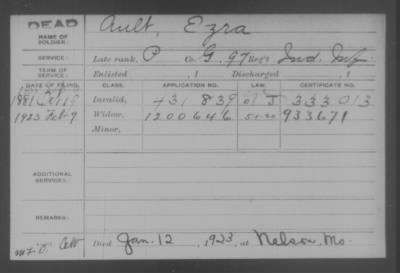 DEAD Ault, Ezra
NAME OF SOLDIER:
SERVICE: Late rank, P Co. G, 97 Reg't Ind. Inf.
TERM OF SERVICE: Enlisted , 1 Discharged , 1
DATE OF FILING. CLASS. APPLICATION NO. LAW. CERTIFICATE NO.
1881 Invalid, 431 839 J 333 013
1923 Feb 9 Widow, 1200646 933671
Minor,
ADDITIONAL SERVICES:
REMARKS:
Died Jan. 12, 1923, at Nelson, Mo.